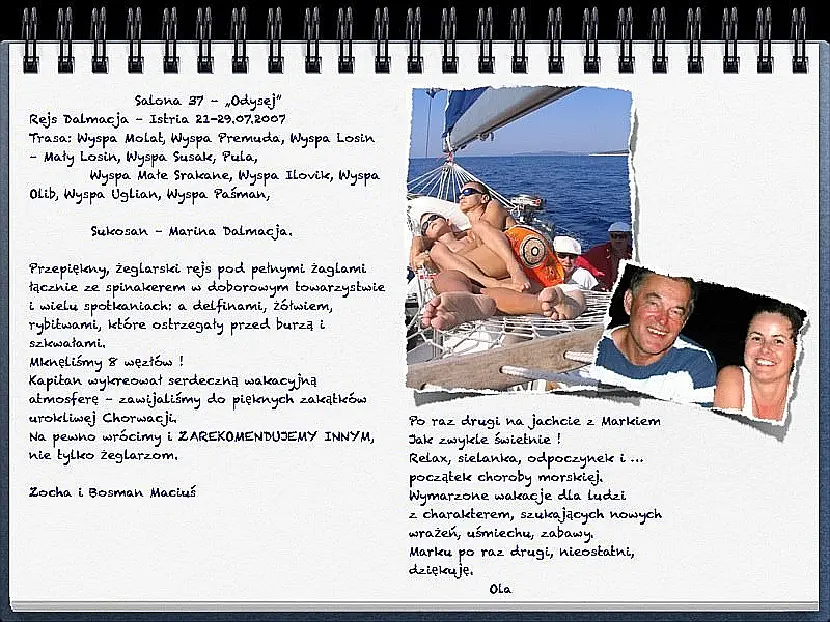 Salona 37 – „Odysej"
Rejs Dalmacja – Istria 21-29.07.2007
Trasa: Wyspa Molat, Wyspa Premuda, Wyspa Losin
– Mały Losin, Wyspa Susak, Pula,
Wyspa Małe Srakane, Wyspa Ilovik, Wyspa
Olib, Wyspa Uglian, Wyspa Paśman,
Sukosan – Marina Dalmacja.
Przepiękny, żeglarski rejs pod pełnymi żaglami
łącznie ze spinakerem w doborowym towarzystwie
i wielu spotkaniach: a delfinami, żółwiem,
rybitwami, które ostrzegały przed burzą i
szkwałami.
Mknęliśmy 8 węzłów !
Kapitan wykreował serdeczną wakacyjną
atmosferę – zawijaliśmy do pięknych zakątków
urokliwej Chorwacji.
Na pewno wrócimy i ZAREKOMENDUJEMY INNYM,
nie tylko żeglarzom.
Zocha i Bosman Maciuś
Po raz drugi na jachcie z Markiem
Jak zwykle świetnie !
Relax, sielanka, odpoczynek i ...
początek choroby morskiej.
Wymarzone wakacje dla ludzi
z charakterem, szukających nowych
wrażeń, uśmiechu, zabawy.
Marku po raz drugi, nieostatni,
dziękuję.
Ola